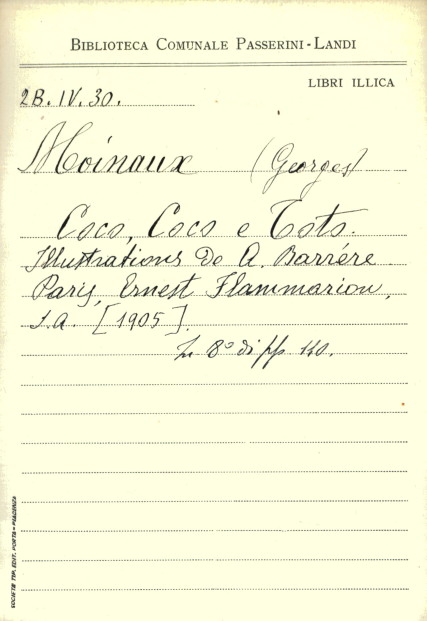 BIBLIOTECA COMUNALE PASSERINI-LANDI
LIBRI ILLICA
2B. IV. 30.
Moinaux (Georges)
Coco, Coco e Toto.
Illustrations de A. Barrére
Paris, Ernest Flammarion,
s.a. [1905].
In 8° di pp 140.
SOCIETÀ TIP. EDIT. PORTA - PIACENZA